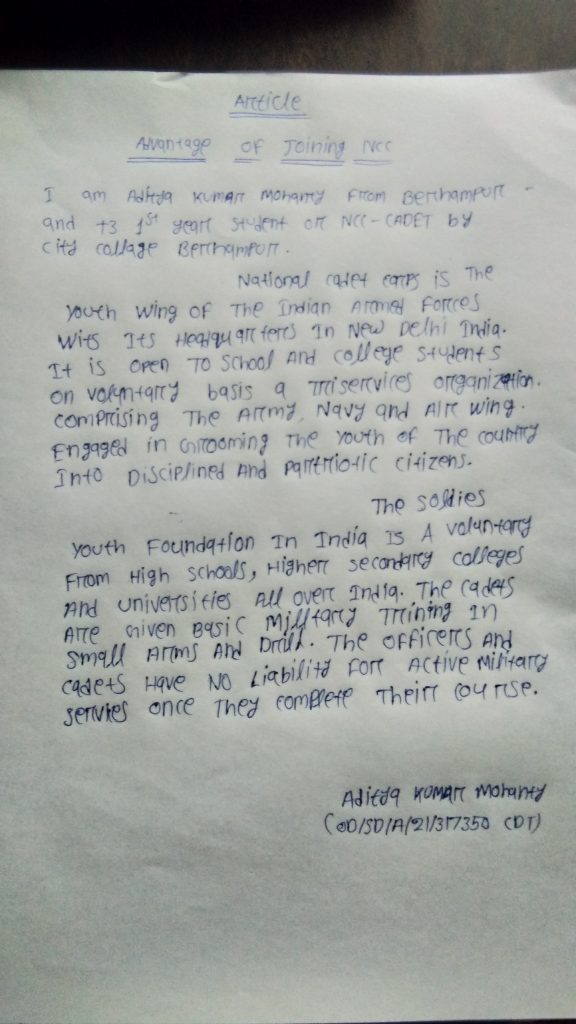 Article
Advantage of Joining NCC
I am Aditya Kumar Mohanty From Berhampur -
and +3 1st year student or NCC-CADET by
City collage Berhampur.
National cadet corps is The
youth wing of The Indian Armed Forces
Wits Its Headquarters In New Delhi India.
It is open To School And college students
on voluntary basis a Triservices organization.
comprising The Army, Navy and Air wing.
Engaged in Grooming The youth of The country
Into Disciplined And Partriotic citizens.
The Soldies
youth Foundation In India Is A voluntary
From High schools, Higher secondary colleges
And universities All over India. The cadets
Are Given Basic Military Trining In
Small Arms And Drill. The officers And
cadets Have No Liability For Active Military
servies once They complete Their course.
Aditya Kumar Mohanty
(OD/SD/A/21/317350 CDT)